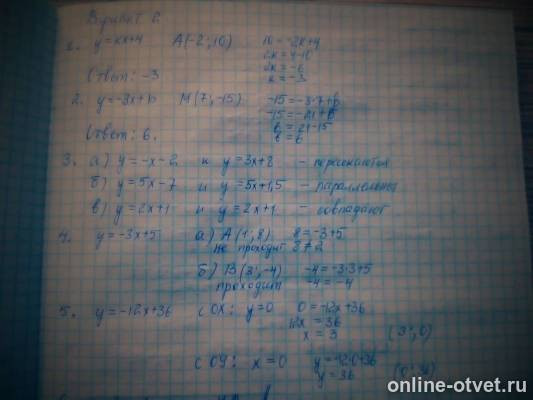 Вариант 2.
1. y=kx+4 A(-2; 10) 10=-2k+4
2k=4-10
2k=-6
Ответ: -3 k=-3
2. y=-3x+b M(7; -15) -15=-3·7+b
-15=-21+b
b=21-15
Ответ: 6. b=6
3. а) y=-x-2 и y=3x+2 - пересекаются
б) y=5x-7 и y=5x+1,5 - параллельны
в) y=2x+1 и y=2x+1 - совпадают
4. y=-3x+5 а) A(1; 8) 8=-3+5
не проходит 8≠2
б) B(3; -4) -4=-3·3+5
проходит -4=-4
5. y=-12x+36 с OX: y=0 0=-12x+36
12x=36
x=3 (3; 0)
с OY: x=0 y=-12·0+36
y=36 (0; 36)
online-otvet.ru